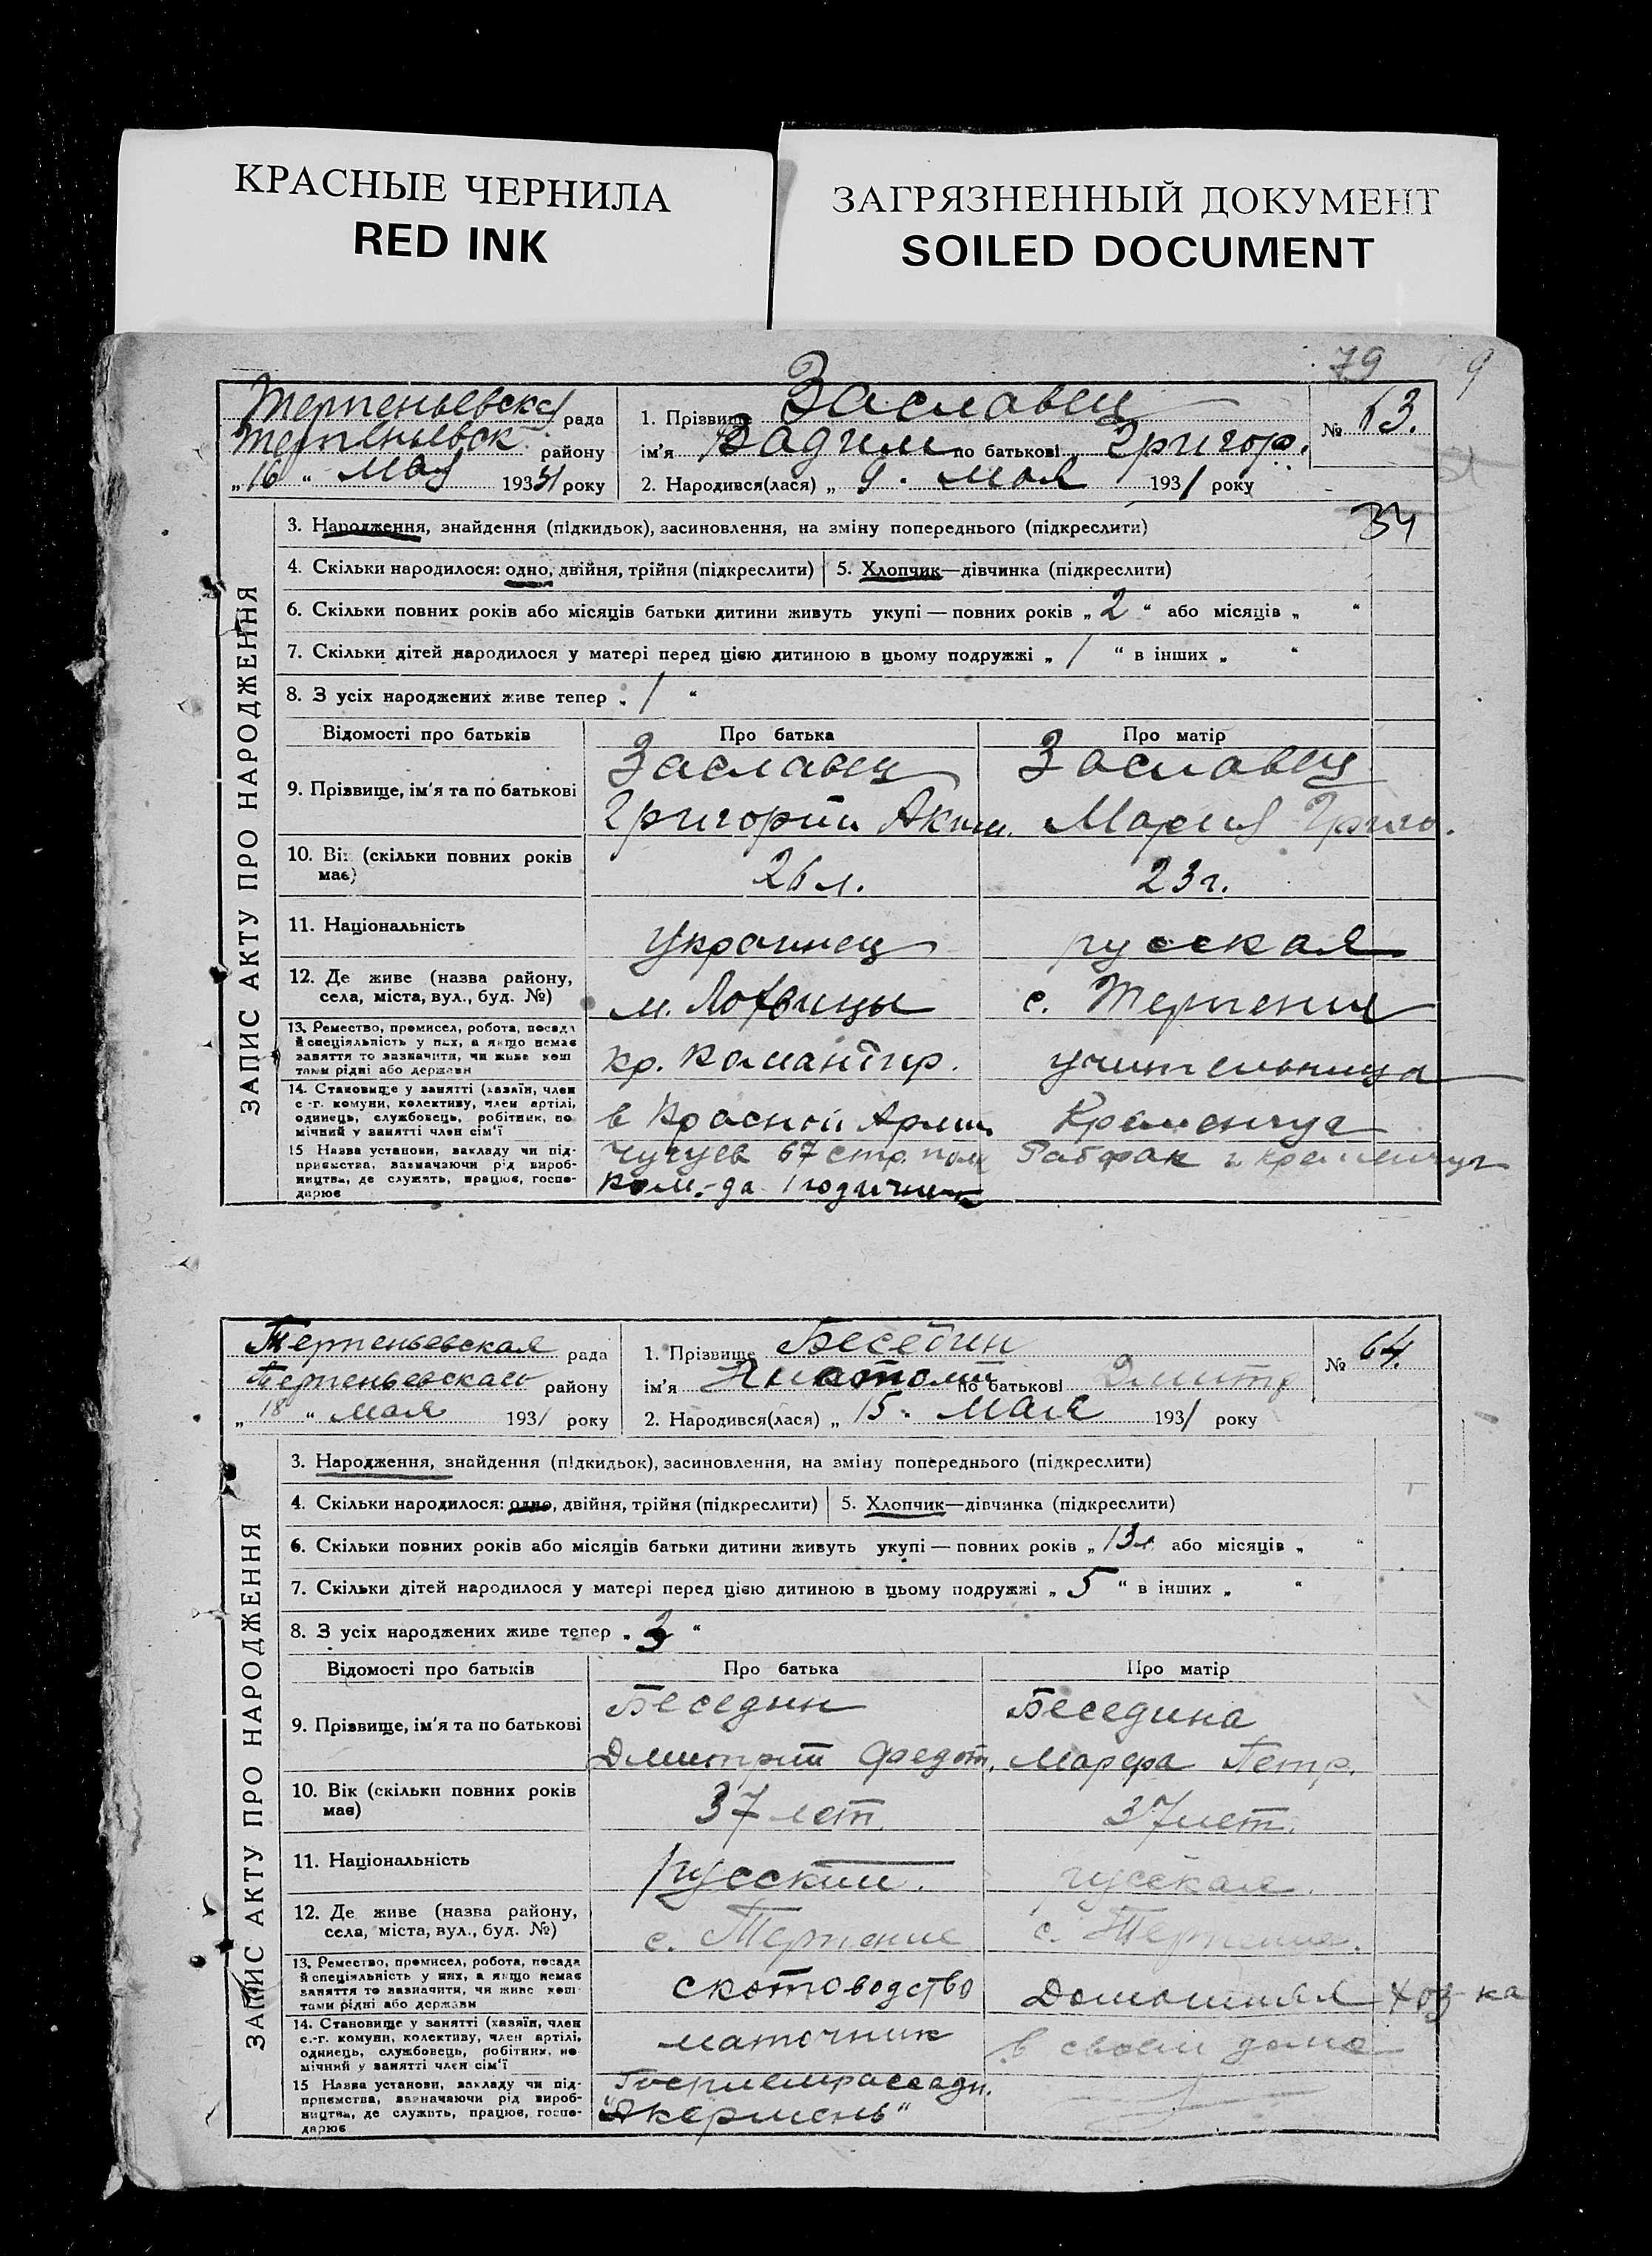 КРАСНЫЕ ЧЕРНИЛА
RED INK
ЗАГРЯЗНЕННЫЙ ДОКУМЕНТ
SOILED DOCUMENT
79 9
Терпеньевска рада
Терпеньевск району
„16 “ мая 1931 року
1. Прізвище Заславец
ім'я Вадим по батькові Григор.
2. Народився(лася) „ 9. мая 1931 року
№ 63.
34
ЗАПИС АКТУ ПРО НАРОДЖЕННЯ
3. Народження, знайдення (підкидьок), засиновлення, на зміну попереднього (підкреслити)
4. Скільки народилося: одно, двійня, трійня (підкреслити) 5. Хлопчик—дівчинка (підкреслити)
6. Скільки повних років або місяців батьки дитини живуть укупі — повних років „ 2 “ або місяців „ “
7. Скільки дітей народилося у матері перед цією дитиною в цьому подружжі „ 1 “ в інших „ “
8. З усіх народжених живе тепер „ 1 “
Відомості про батьків Про батька Про матір
9. Прізвище, ім'я та по батькові
Заславец
Григорий Аким.
Заславец
Мария Григо.
10. Вік (скільки повних років
має)
26 л. 23 г.
11. Національність
Украинец русская
12. Де живе (назва району,
села, міста, вул., буд. №)
м. Лохвицы с. Терпение
13. Ремество, промисел, робота, посада
й спеціяльність у них, а якщо немає
заняття то зазначити, чи живе кош
тами рідні або держави
кр. командир. учительница
14. Становище у занятті (хазяїн, член
с.-г. комуни, колективу, член артілі,
одинець, службовець, робітник, по
мічний у занятті член сім'ї
в Красной Армии Кременчуг
15 Назва установи, закладу чи під-
приємства, зазначаючи рід вироб-
ництва, де служить, працює, госпо-
дарює
Чугуев 67 стр. полк
ком-да 1годичник
Рабфак г. Кременчуг
Терпеньевская рада
Терпеньевскаго району
„ 18 “ мая 1931 року
1. Прізвище Беседин
ім'я Анатолий по батькові Дмитр
2. Народився(лася) „ 15 “ мая 1931 року
№ 64.
ЗАПИС АКТУ ПРО НАРОДЖЕННЯ
3. Народження, знайдення (підкидьок), засиновлення, на зміну попереднього (підкреслити)
4. Скільки народилося: одно, двійня, трійня (підкреслити) 5. Хлопчик—дівчинка (підкреслити)
6. Скільки повних років або місяців батьки дитини живуть укупі — повних років „ 13 л. або місяців „ “
7. Скільки дітей народилося у матері перед цією дитиною в цьому подружжі „ 5 “ в інших „ “
8. З усіх народжених живе тепер „ 3 “
Відомості про батьків Про батька Про матір
9. Прізвище, ім'я та по батькові
Беседин
Дмитрий Федот.
Беседина
Марфа Петр.
10. Вік (скільки повних років
має)
37 лет. 37 лет.
11. Національність
русский. русская.
12. Де живе (назва району,
села, міста, вул., буд. №)
с. Терпение с. Терпение.
13. Ремество, промисел, робота, посада
й спеціяльність у них, а якщо немає
заняття то зазначити, чи живе кош
тами рідні або держави
скотоводство Домашняя хоз-ка
14. Становище у занятті (хазяїн, член
с.-г. комуни, колективу, член артілі,
одинець, службовець, робітник, по
мічний у занятті член сім'ї
маточник в своем доме
15 Назва установи, закладу чи під-
приємства, зазначаючи рід вироб-
ництва, де служить, працює, госпо-
дарює
Госплемрассадн.
"Акермень"